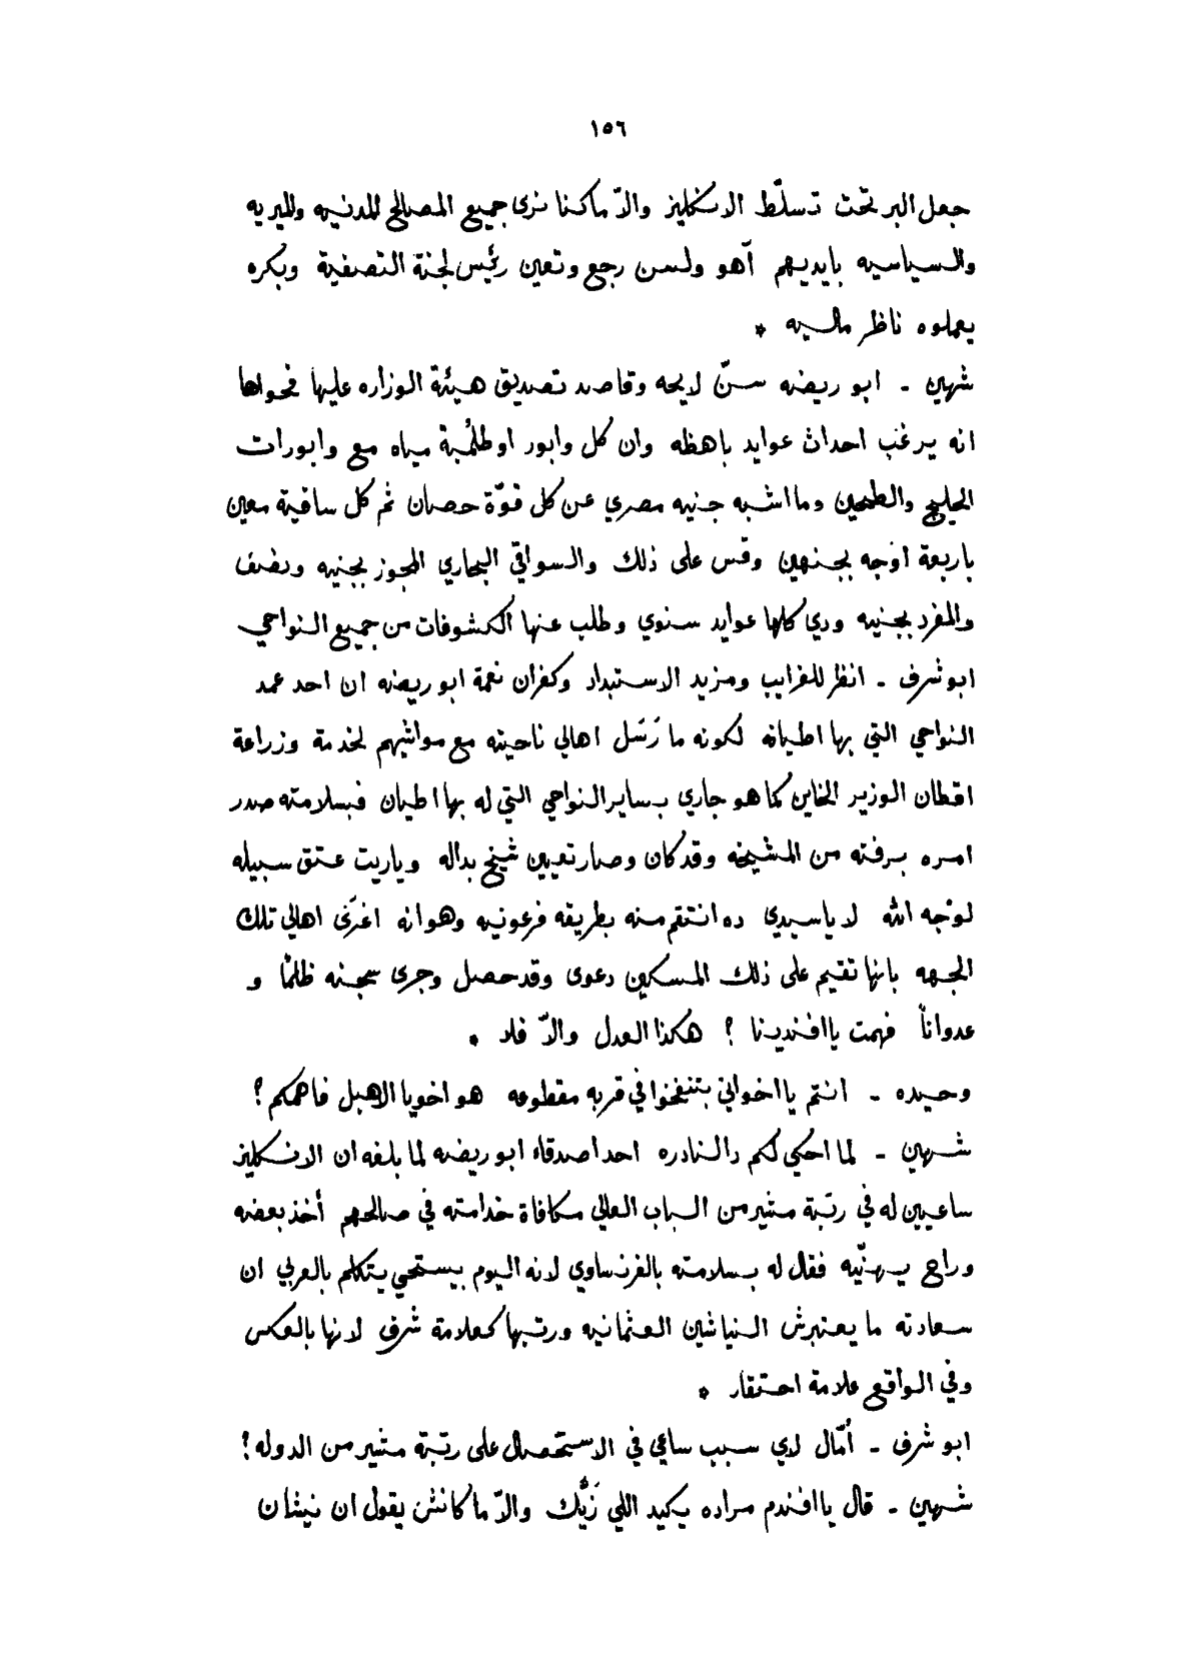 ١٥٦
جعل البر تحت تسلّط الانكليز والاّ ماكنا نرى جميع المصالح المدنيه والميريه
والسياسيه بايديهم آهو ولسن رجع وتعين رئيس لجنة التصفية وبكره
يعملوه ناظر ماليه *
شهين ـ ابو ريضه سنّ لايحه وقاصد تصديق هيئة الوزاره عليها فحواها
انه يرغب احداث عوايد باهظه وان كل وابور اوطلمبة مياه مع وابورات
الحليج والطحين وما اشبه جنيه مصري عن كل قوّة حصان ثم كل ساقية معين
باربعة اوجه بجنهين وقس على ذلك والسواقي البحاري المجوز بجنيه ونصف
والمفرد بجنيه ودي كلها عوايد سنوي وطلب عنها الكشوفات من جميع النواحي
ابو شرف ـ انظر للغرايب ومزيد الاستبداد وكفران نعمة ابو ريضه ان احد عمد
النواحي التي بها اطيانه لكونه ما رَسَل اهالي ناحيته مع مواشيهم لخدمة وزراعة
اقطان الوزير الخاين كما هو جاري بساير النواحي التي له بها اطيان فبسلامته صدر
امره برفته من المشيخه وقد كان وصار تعيين شيخ بداله وياريت عتق سبيله
لوجه الله لا ياسيدي ده انتقم منه بطريقه فرعونيه وهو انه اغرَى اهالي تلك
الجهه بانها تقيم على ذلك المسكين دعوى وقد حصل وجرى سجنه ظلمًا و
عدواناً فهمت يا افندينا ؟ هكذا العدل والاّ فلا *
وحيده ـ انتم يا اخواني بتنفخوا في قربه مقطوعه هو اخويا الاهبل فاهمكم ؟
شهين ـ لما احكي لكم دالنادره احد اصدقاء ابو ريضه لما بلغه ان الانكليز
ساعيين له في رتبة مشير من الباب العالي مكافاة خدامته في صالحهم أخذ بعضه
وراح يهنّيه فقال له بسلامته بالفرنساوي لانه اليوم بيستحي يتكلم بالعربي ان
سعادته ما يعتبرش النياشين العثمانيه ورتبها كعلامة شرف لانها بالعكس
وفي الواقع علامة احتقار *
ابو شرف ـ أمّال لاي سبب ساعي في الاستحصال على رتبة مشير من الدوله ؟
شهين ـ قال يا افندم مراده يكيد اللي زَيَّك والاّ ماكانش يقول ان نيشان